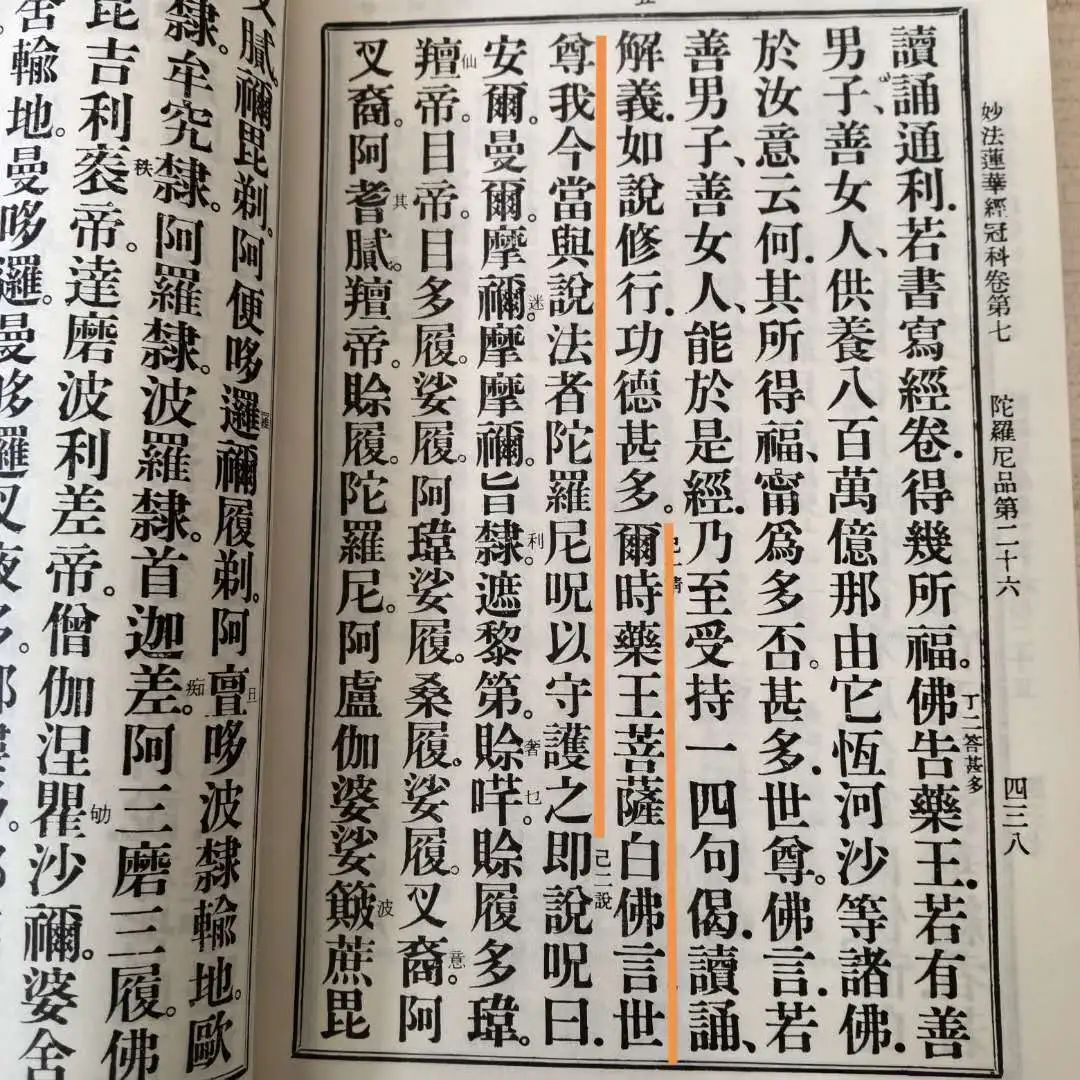 妙法蓮華經冠科卷第七 陀羅尼品第二十六 四三八
讀誦通利.若書寫經卷.得幾所福。佛告藥王.若有善
丁二答甚多
男子、善女人、供養八百萬億那由它恆河沙等諸佛.
於汝意云何.其所得福、甯為多否。甚多.世尊。佛言.若
善男子、善女人、能於是經.乃至受持一四句偈.讀誦、
解義.如說修行.功德甚多。爾時藥王菩薩白佛言世
尊我今當與說法者陀羅尼呪以守護之即說呪曰.
己二說
安爾。曼爾。摩禰。摩摩禰。旨隸。遮黎第。賒咩。賒履多瑋。
迷 利 奢 乜
羶帝。目帝。目多履。娑履。阿瑋娑履。桑履。娑履。叉裔。阿
仙 意
叉裔。阿耆膩。羶帝。賒履。陀羅尼。阿盧伽婆娑簸蔗毘
其 波
叉膩禰毘剃。阿便哆邏禰履剃。阿亶哆波隸輸地。歐
隸。牟究隸。阿羅隸。波羅隸。首迦差。阿三磨三履。佛
痴
毘吉利袠帝。達磨波利差帝。僧伽涅瞿沙禰。婆舍
秩 劬
舍輸地。曼哆邏。曼哆邏叉夜多。